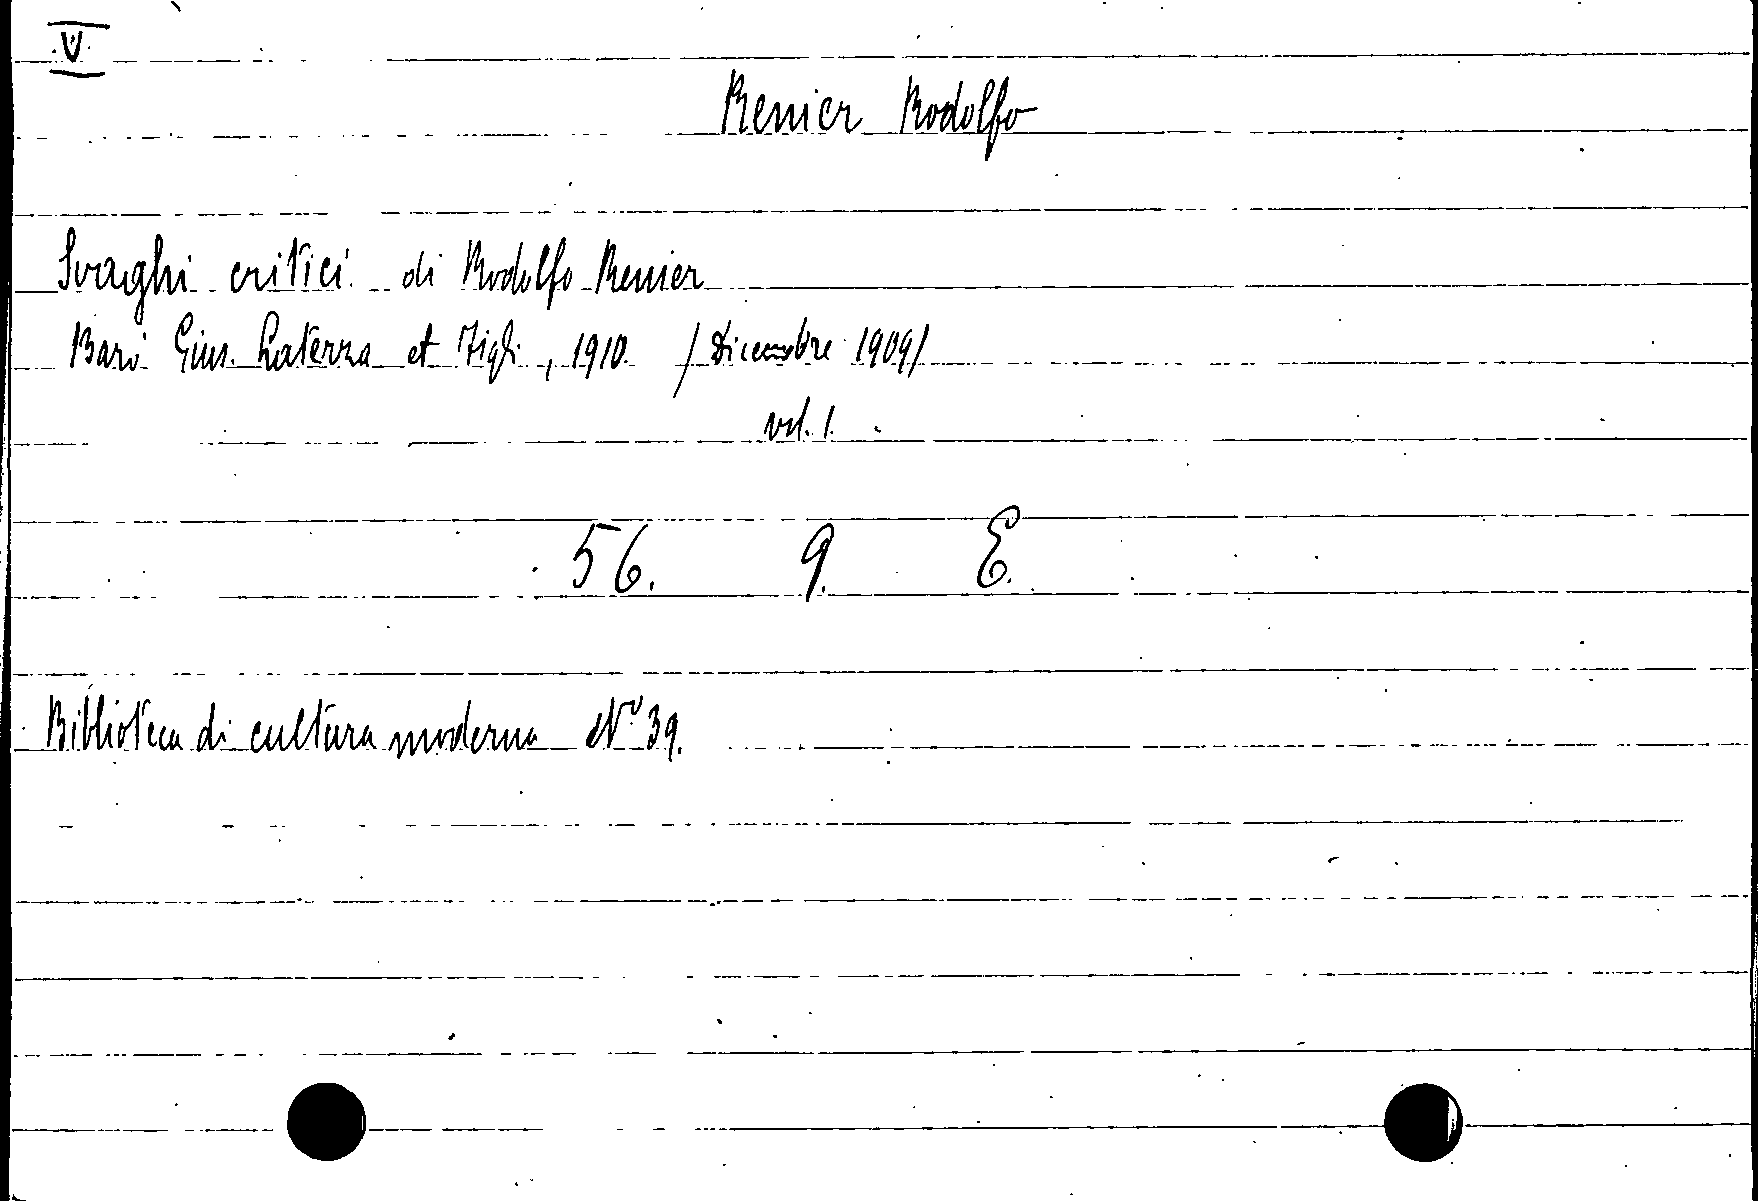 V
Renier Rodolfo
Svaghi critici di Rodolfo Renier
Bari Gius. Laterza et Figli, 1910. /Dicembre 1909/
vol. 1.
56. 9. E.
Biblioteca di cultura moderna No 39.